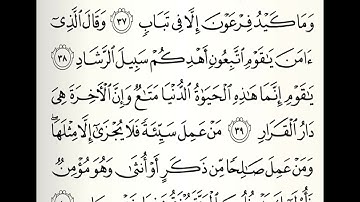 وَمَا كَيْدُ فِرْعَوْنَ إِلَّا فِى تَبَابٍ ٣٧ وَقَالَ ٱلَّذِىٓ
ءَامَنَ يَٰقَوْمِ ٱتَّبِعُونِ أَهْدِكُمْ سَبِيلَ ٱلرَّشَادِ ٣٨
يَٰقَوْمِ إِنَّمَا هَٰذِهِ ٱلْحَيَوٰةُ ٱلدُّنْيَا مَتَٰعٌ وَإِنَّ ٱلْءَاخِرَةَ هِىَ
دَارُ ٱلْقَرَارِ ٣٩ مَنْ عَمِلَ سَيِّئَةً فَلَا يُجْزَىٰٓ إِلَّا مِثْلَهَا ۖ
وَمَنْ عَمِلَ صَٰلِحًا مِّن ذَكَرٍ أَوْ أُنثَىٰ وَهُوَ مُؤْمِنٌ